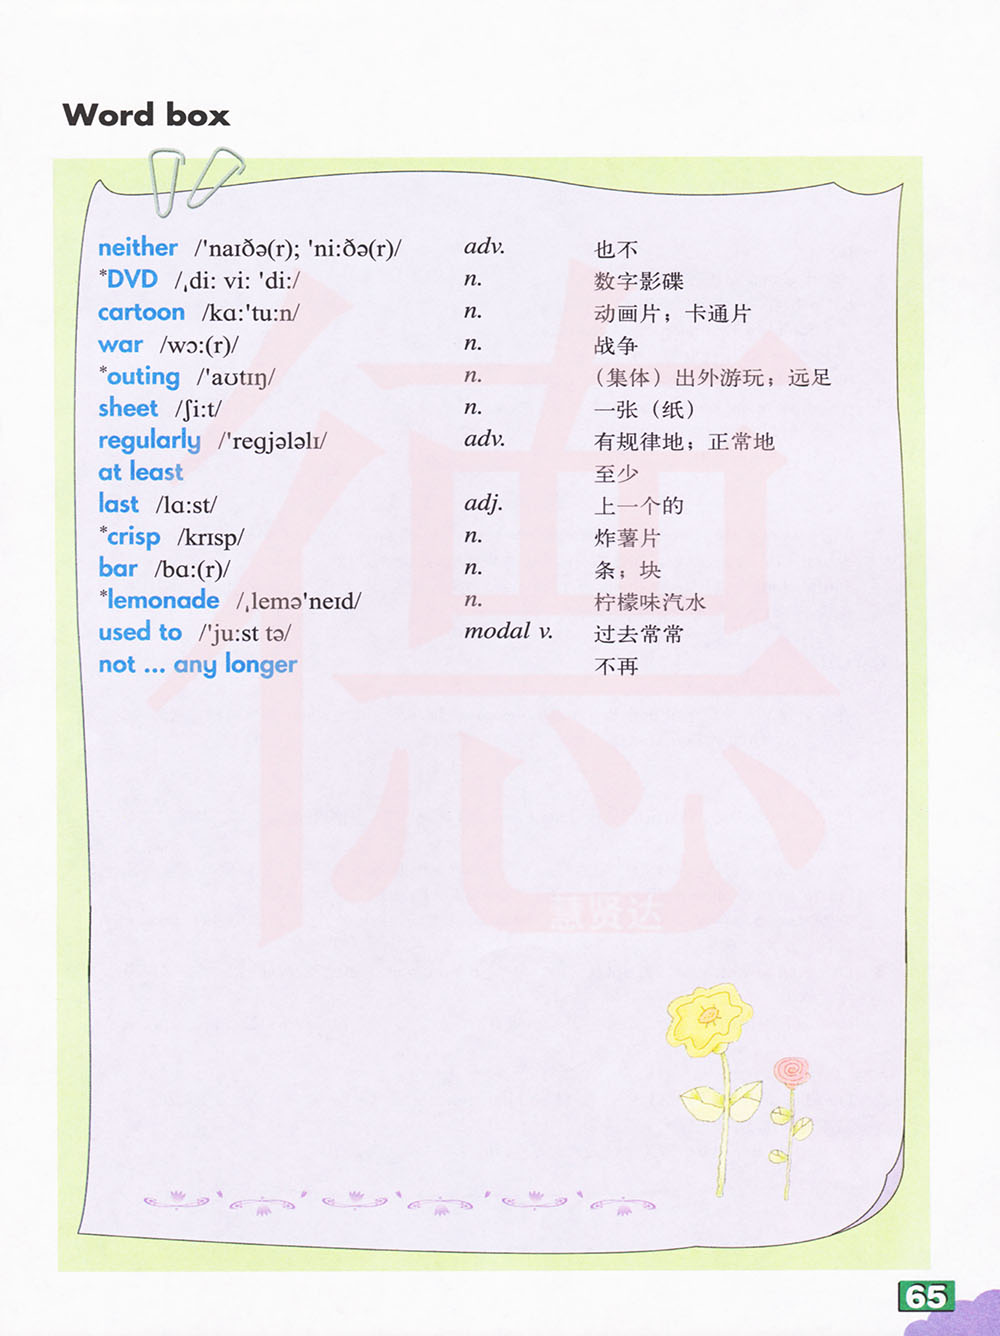 Word box
neither /'naɪðə(r); 'ni:ðə(r)/ adv. 也不
*DVD /ˌdi: vi: 'di:/ n. 数字影碟
cartoon /kɑ:'tu:n/ n. 动画片；卡通片
war /wɔ:(r)/ n. 战争
*outing /'aʊtɪŋ/ n. （集体）出外游玩；远足
sheet /ʃi:t/ n. 一张（纸）
regularly /'reɡjələlɪ/ adv. 有规律地；正常地
at least 至少
last /lɑ:st/ adj. 上一个的
*crisp /krɪsp/ n. 炸薯片
bar /bɑ:(r)/ n. 条；块
*lemonade /ˌlemə'neɪd/ n. 柠檬味汽水
used to /'ju:st tə/ modal v. 过去常常
not ... any longer 不再
德
慧贤达
65